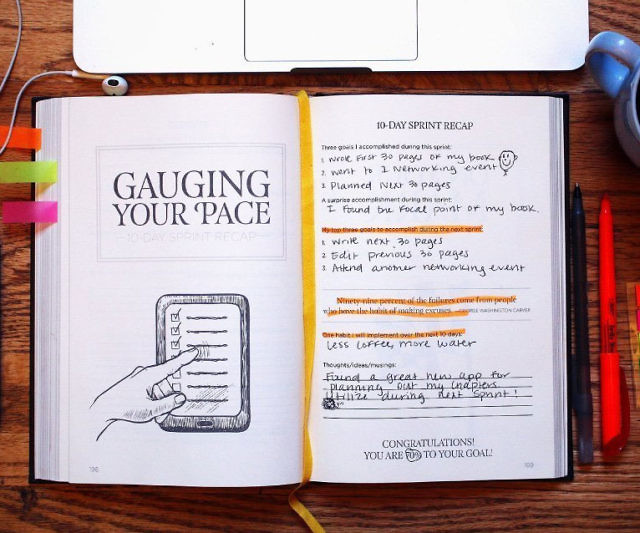 GAUGING
YOUR PACE
10-DAY SPRINT RECAP
196
10-DAY SPRINT RECAP
Three goals I accomplished during this sprint:
1. Wrote First 30 pages of my book
2. Went to 1 Networking event
3. Planned Next 30 pages
A surprise accomplishment during this sprint:
I found the Focal point of my book.
My top three goals to accomplish during the next sprint:
1. Write next 30 pages
2. Edit previous 30 pages
3. Attend another networking event
Ninety-nine percent of the failures come from people
who have the habit of making excuses. —GEORGE WASHINGTON CARVER
One habit I will implement over the next 10 days:
Less Coffee, more water
Thoughts/ideas/musings:
Found a great new app for
planning out my chapters.
Utilize during next sprint!
CONGRATULATIONS!
YOU ARE 70% TO YOUR GOAL!